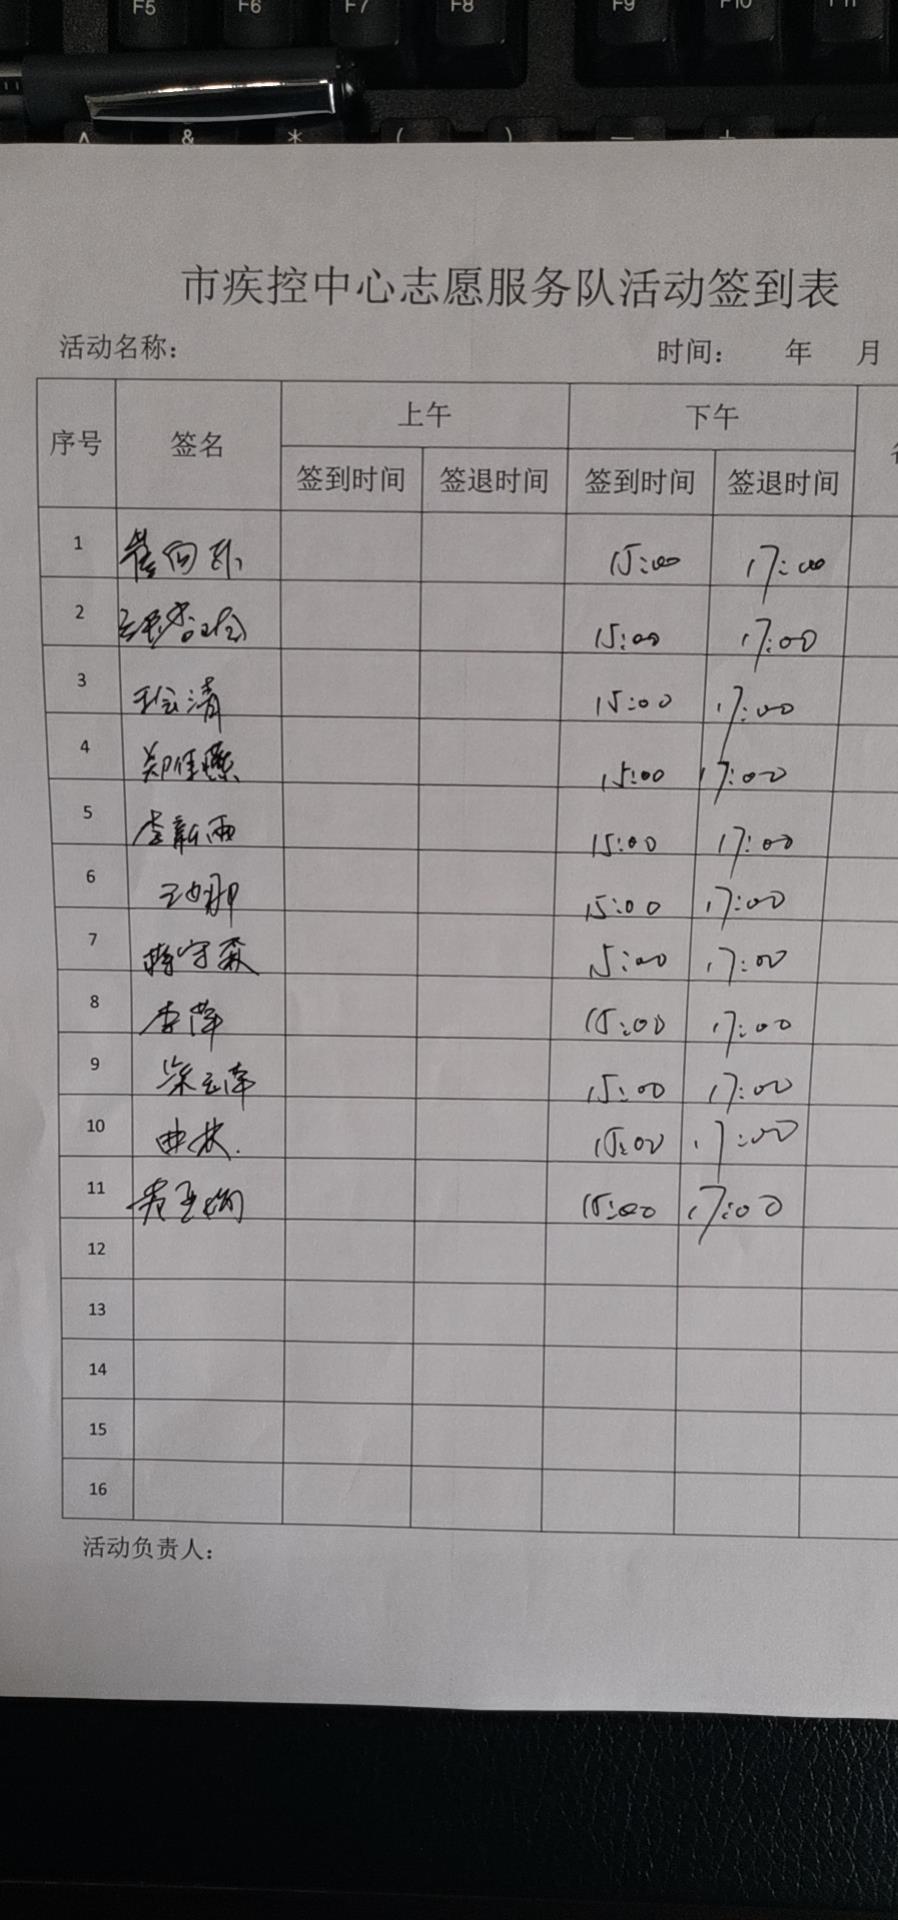 F5 F6 F7 F8 F9 F10 F11
^ & * ( ) — +
市疾控中心志愿服务队活动签到表
活动名称： 时间： 年 月
序号 签名 上午 下午
签到时间 签退时间 签到时间 签退时间
1 15:00 17:00
2 15:00 17:00
3 王会清 15:00 17:00
4 郑佳 15:00 17:00
5 李新雨 15:00 17:00
6 15:00 17:00
7 守森 15:00 17:00
8 李萍 15:00 17:00
9 15:00 17:00
10 15:00 17:00
11 15:00 17:00
12
13
14
15
16
活动负责人：